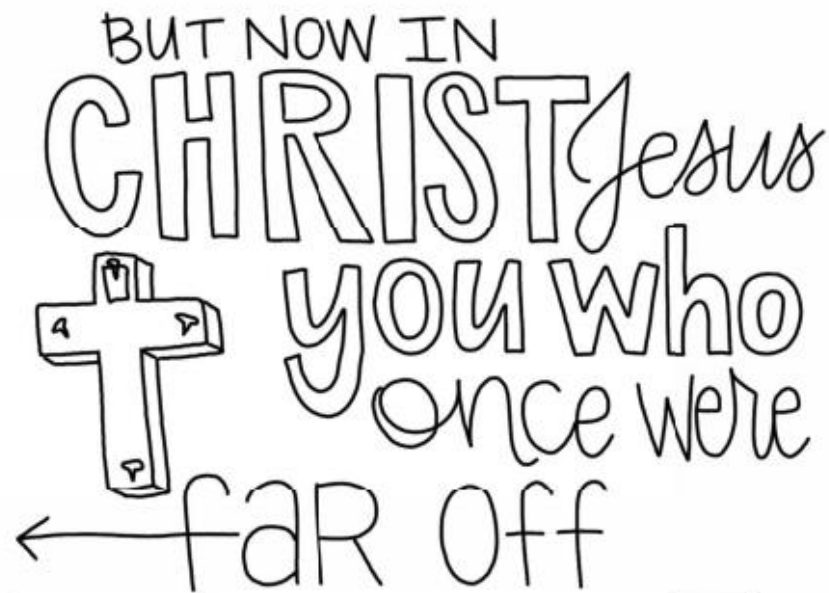 BUT NOW IN
CHRIST Jesus
you who
once were
faR Off